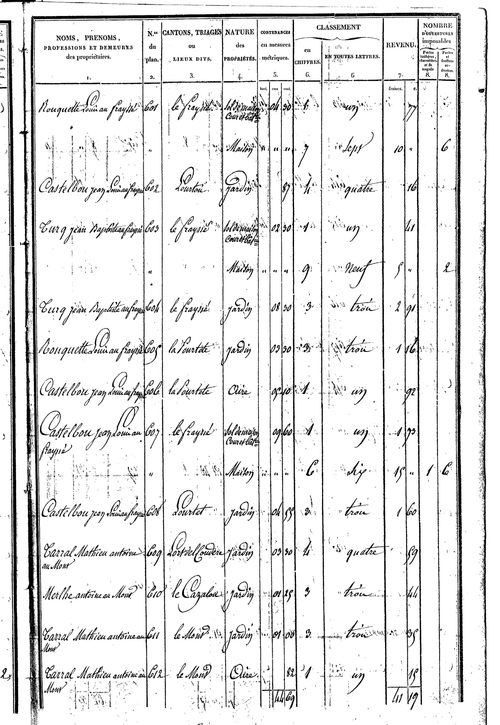 NOMS, PRÉNOMS, PROFESSIONS ET DEMEURES des propriétaires. N.os du plan. CANTONS, TRIAGES ou LIEUX DITS. NATURE des PROPRIÉTÉS. CONTENANCES en mesures métriques. CLASSEMENT en CHIFFRES. EN TOUTES LETTRES. REVENU. NOMBRE D'OUVERTURES imposables
1. 2. 3. 4. 5. 6. 6. 7. 8. 8.
francs. cent.
Rouquette Louis au fraysse 601 le fraysse sol de maison Cour et 04 30 1 un 77
" " " Maison " " " 7 Sept 10 " 6
Castelbou jean Louis au 602 Jardin 87 4 quatre 16
Turq jean Baptiste au fraysse 603 le fraysse sol de maison Cour et 02 30 1 un 41
" Maison " " " 9 Neuf 5 " 2
Turq jean Baptiste au fraysse 604 le fraysse Jardin 08 30 3 trois 2 91
Rouquette Louis au fraysse 605 la Jardin 03 30 3 trois 1 16
Castelbou jean Louis au fraysse 606 la Aire 05 10 1 un 92
Castelbou jean Louis au 607 le fraysse sol de maison Cour et 09 60 1 un 1 73
fraysse
" Maison " " " 6 Six 15 " 1 6
Castelbou jean Louis au fraysse 608 Jardin 04 55 3 trois 1 60
Tarral Mathieu antoine 609 Jardin 03 30 4 quatre 59
au Mont
Merlhe antoine au Mont 610 le Cazalou Jardin 01 25 3 trois 44
Tarral Mathieu antoine au 611 le Mont Jardin 01 00 3 trois 35
Mont
Tarral Mathieu antoine au 612 le Mont Aire 82 1 un 15
Mont
44 69 41 19
2